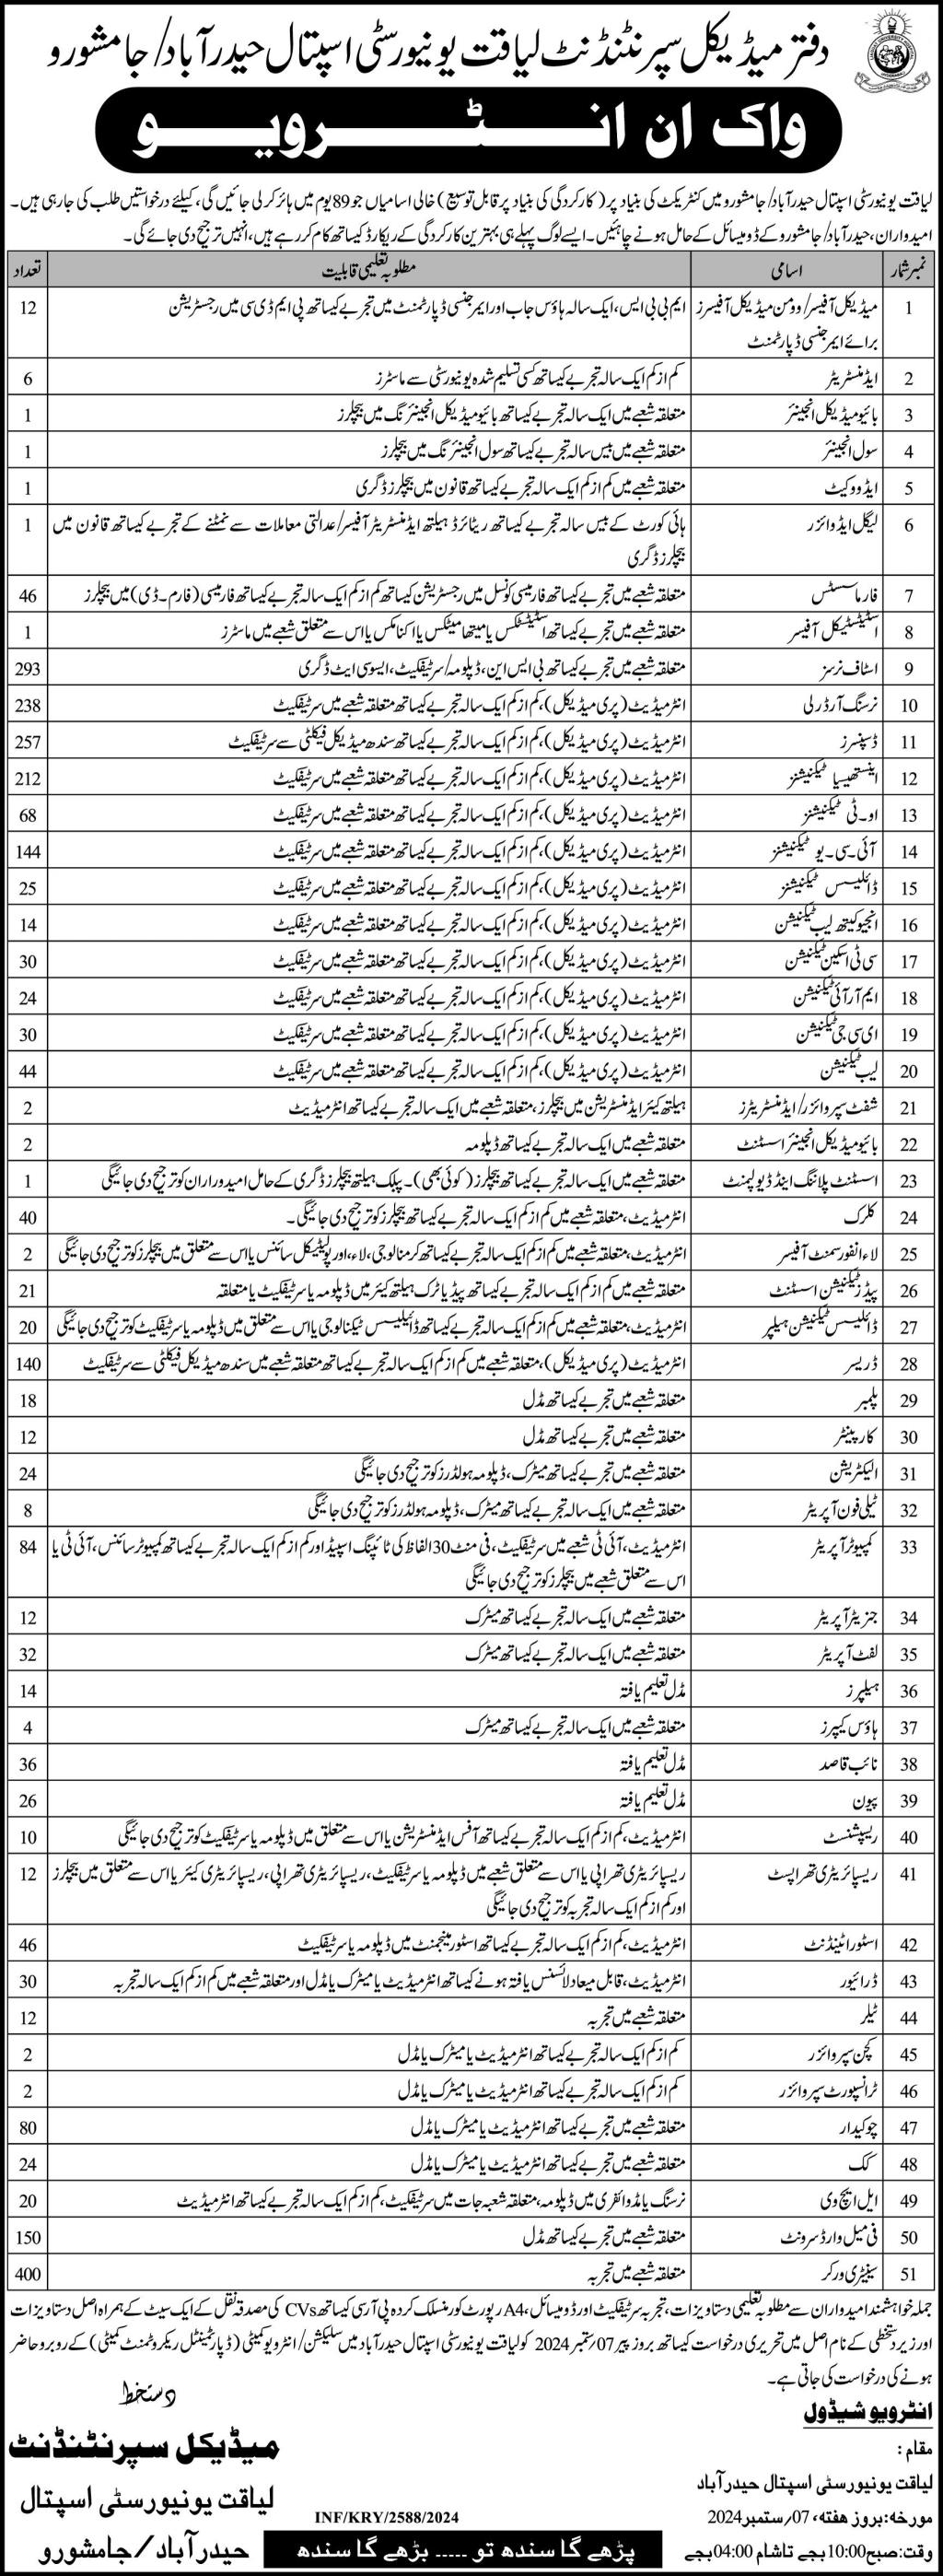 دفتر میڈیکل سپرنٹنڈنٹ لیاقت یونیورسٹی اسپتال حیدرآباد/جامشورو
واک ان انٹرویو
لیاقت یونیورسٹی اسپتال حیدرآباد/جامشورو میں کنٹریکٹ کی بنیاد پر (کارکردگی کی بنیاد پر قابل توسیع) خالی اسامیاں جو 89 یوم میں ہائر کرلی جائیں گی، کیلئے درخواستیں طلب کی جارہی ہیں۔
امیدواران، حیدرآباد/جامشورو کے ڈومیسائل کے حامل ہونے چاہئیں۔ ایسے لوگ پہلے ہی بہترین کارکردگی کے ریکارڈ کیساتھ کام کررہے ہیں، انہیں ترجیح دی جائے گی۔
نمبر شمار اسامی مطلوبہ تعلیمی قابلیت تعداد
1 میڈیکل آفیسر/وومن میڈیکل آفیسرز ایم بی بی ایس، ایک سالہ ہاؤس جاب اور ایمرجنسی ڈپارٹمنٹ میں تجربے کیساتھ پی ایم ڈی سی میں رجسٹریشن 12
برائے ایمرجنسی ڈپارٹمنٹ
2 ایڈمنسٹریٹر کم از کم ایک سالہ تجربے کیساتھ کسی تسلیم شدہ یونیورسٹی سے ماسٹرز 6
3 بائیومیڈیکل انجینئر متعلقہ شعبے میں ایک سالہ تجربے کیساتھ بائیومیڈیکل انجینئرنگ میں بیچلرز 1
4 سول انجینئر متعلقہ شعبے میں بیس سالہ تجربے کیساتھ سول انجینئرنگ میں بیچلرز 1
5 ایڈووکیٹ متعلقہ شعبے میں کم از کم ایک سالہ تجربے کیساتھ قانون میں بیچلرز ڈگری 1
6 لیگل ایڈوائزر ہائی کورٹ کے بیس سالہ تجربے کیساتھ ریٹائرڈ ہیلتھ ایڈمنسٹریٹر آفیسر/عدالتی معاملات سے نمٹنے کے تجربے کیساتھ قانون میں 1
بیچلرز ڈگری
7 فارماسسٹس متعلقہ شعبے میں تجربے کیساتھ فارمیسی کونسل میں رجسٹریشن کیساتھ کم از کم ایک سالہ تجربے کیساتھ فارمیسی (فارم۔ڈی) میں بیچلرز 46
8 اسٹیٹسٹیکل آفیسر متعلقہ شعبے میں تجربے کیساتھ اسٹیٹسٹکس یا میتھامیٹکس یا اکنامکس یا اس سے متعلق شعبے میں ماسٹرز 1
9 اسٹاف نرسز متعلقہ شعبے میں تجربے کیساتھ بی ایس این، ڈپلومہ/سرٹیفکیٹ، ایسوسی ایٹ ڈگری 293
10 نرسنگ آرڈرلی انٹرمیڈیٹ (پری میڈیکل)، کم از کم ایک سالہ تجربے کیساتھ متعلقہ شعبے میں سرٹیفکیٹ 238
11 ڈسپنسرز انٹرمیڈیٹ (پری میڈیکل)، کم از کم ایک سالہ تجربے کیساتھ سندھ میڈیکل فیکلٹی سے سرٹیفکیٹ 257
12 اینستھیسیا ٹیکنیشنز انٹرمیڈیٹ (پری میڈیکل)، کم از کم ایک سالہ تجربے کیساتھ متعلقہ شعبے میں سرٹیفکیٹ 212
13 او۔ٹی ٹیکنیشنز انٹرمیڈیٹ (پری میڈیکل)، کم از کم ایک سالہ تجربے کیساتھ متعلقہ شعبے میں سرٹیفکیٹ 68
14 آئی۔سی۔یو ٹیکنیشنز انٹرمیڈیٹ (پری میڈیکل)، کم از کم ایک سالہ تجربے کیساتھ متعلقہ شعبے میں سرٹیفکیٹ 144
15 ڈائلیسس ٹیکنیشنز انٹرمیڈیٹ (پری میڈیکل)، کم از کم ایک سالہ تجربے کیساتھ متعلقہ شعبے میں سرٹیفکیٹ 25
16 انجیو کیتھ لیب ٹیکنیشن انٹرمیڈیٹ (پری میڈیکل)، کم از کم ایک سالہ تجربے کیساتھ متعلقہ شعبے میں سرٹیفکیٹ 14
17 سی ٹی اسکین ٹیکنیشن انٹرمیڈیٹ (پری میڈیکل)، کم از کم ایک سالہ تجربے کیساتھ متعلقہ شعبے میں سرٹیفکیٹ 30
18 ایم آر آئی ٹیکنیشن انٹرمیڈیٹ (پری میڈیکل)، کم از کم ایک سالہ تجربے کیساتھ متعلقہ شعبے میں سرٹیفکیٹ 24
19 ای سی جی ٹیکنیشن انٹرمیڈیٹ (پری میڈیکل)، کم از کم ایک سالہ تجربے کیساتھ متعلقہ شعبے میں سرٹیفکیٹ 30
20 لیب ٹیکنیشن انٹرمیڈیٹ (پری میڈیکل)، کم از کم ایک سالہ تجربے کیساتھ متعلقہ شعبے میں سرٹیفکیٹ 44
21 شفٹ سپروائزر/ایڈمنسٹریٹرز ہیلتھ کیئر ایڈمنسٹریشن میں بیچلرز، متعلقہ شعبے میں ایک سالہ تجربے کیساتھ انٹرمیڈیٹ 2
22 بائیومیڈیکل انجینئر اسسٹنٹ متعلقہ شعبے میں ایک سالہ تجربے کیساتھ ڈپلومہ 2
23 اسسٹنٹ پلاننگ اینڈ ڈیولپمنٹ متعلقہ شعبے میں ایک سالہ تجربے کیساتھ بیچلرز (کوئی بھی)۔ پبلک ہیلتھ بیچلرز ڈگری کے حامل امیدواران کو ترجیح دی جائیگی 1
24 کلرک انٹرمیڈیٹ، متعلقہ شعبے میں کم از کم ایک سالہ تجربے کیساتھ بیچلرز کو ترجیح دی جائیگی۔ 40
25 لاء انفورسمنٹ آفیسر انٹرمیڈیٹ، متعلقہ شعبے میں کم از کم ایک سالہ تجربے کیساتھ کرمنالوجی، لاء، اور پولیٹیکل سائنس یا اس سے متعلق میں بیچلرز کو ترجیح دی جائیگی 2
26 پیڈز ٹیکنیشن اسسٹنٹ متعلقہ شعبے میں کم از کم ایک سالہ تجربے کیساتھ پیڈیاٹرک ہیلتھ کیئر میں ڈپلومہ یا سرٹیفکیٹ یا متعلقہ 21
27 ڈائلیسس ٹیکنیشن ہیلپر متعلقہ شعبے میں کم از کم ایک سالہ تجربے کیساتھ ڈائیلیسس ٹیکنالوجی یا اس سے متعلق میں ڈپلومہ یا سرٹیفکیٹ کو ترجیح دی جائیگی 20
28 ڈریسر انٹرمیڈیٹ (پری میڈیکل)، متعلقہ شعبے میں کم از کم ایک سالہ تجربے کیساتھ متعلقہ شعبے میں سندھ میڈیکل فیکلٹی سے سرٹیفکیٹ 140
29 پلمبر متعلقہ شعبے میں تجربے کیساتھ مڈل 18
30 کارپینٹر متعلقہ شعبے میں تجربے کیساتھ مڈل 12
31 الیکٹریشن متعلقہ شعبے میں تجربے کیساتھ میٹرک، ڈپلومہ ہولڈرز کو ترجیح دی جائیگی 24
32 ٹیلی فون آپریٹر متعلقہ شعبے میں تجربے کیساتھ میٹرک، ڈپلومہ ہولڈرز کو ترجیح دی جائیگی 8
33 کمپیوٹر آپریٹر انٹرمیڈیٹ، آئی ٹی شعبے میں سرٹیفکیٹ، فی منٹ 30 الفاظ کی ٹائپنگ اسپیڈ اور کم از کم ایک سالہ تجربے کیساتھ کمپیوٹر سائنس، آئی ٹی یا 84
اس سے متعلق شعبے میں بیچلرز کو ترجیح دی جائیگی
34 جنریٹر آپریٹر متعلقہ شعبے میں ایک سالہ تجربے کیساتھ میٹرک 12
35 لفٹ آپریٹر متعلقہ شعبے میں ایک سالہ تجربے کیساتھ میٹرک 32
36 ہیلپرز مڈل تعلیم یافتہ 14
37 ہاؤس کیپرز متعلقہ شعبے میں ایک سالہ تجربے کیساتھ میٹرک 4
38 نائب قاصد مڈل تعلیم یافتہ 36
39 پیون مڈل تعلیم یافتہ 26
40 ریسپشنسٹ انٹرمیڈیٹ، کم از کم ایک سالہ تجربے کیساتھ آفس ایڈمنسٹریشن یا اس سے متعلق میں ڈپلومہ یا سرٹیفکیٹ کو ترجیح دی جائیگی 10
41 ریسپائریٹری تھراپسٹ ریسپائریٹری تھراپی یا اس سے متعلق شعبے میں ڈپلومہ یا سرٹیفکیٹ، ریسپائریٹری تھراپی، ریسپائریٹری کیئر یا اس سے متعلق میں بیچلرز 12
اور کم از کم ایک سالہ تجربہ کو ترجیح دی جائیگی
42 اسٹور اٹینڈنٹ انٹرمیڈیٹ، کم از کم ایک سالہ تجربے کیساتھ اسٹور مینجمنٹ میں ڈپلومہ یا سرٹیفکیٹ 46
43 ڈرائیور انٹرمیڈیٹ، قابل میعاد لائسنس یافتہ ہونے کیساتھ انٹرمیڈیٹ یا میٹرک یا مڈل اور متعلقہ شعبے میں کم از کم ایک سالہ تجربہ 30
44 ٹیلر متعلقہ شعبے میں تجربہ 12
45 کچن سپروائزر کم از کم ایک سالہ تجربے کیساتھ انٹرمیڈیٹ یا میٹرک یا مڈل 2
46 ٹرانسپورٹ سپروائزر کم از کم ایک سالہ تجربے کیساتھ انٹرمیڈیٹ یا میٹرک یا مڈل 2
47 چوکیدار متعلقہ شعبے میں تجربے کیساتھ انٹرمیڈیٹ یا میٹرک یا مڈل 80
48 کک متعلقہ شعبے میں تجربے کیساتھ انٹرمیڈیٹ یا میٹرک یا مڈل 24
49 ایل ایچ وی نرسنگ یا مڈوائفری میں ڈپلومہ، متعلقہ شعبہ جات میں سرٹیفکیٹ، کم از کم ایک سالہ تجربے کیساتھ انٹرمیڈیٹ 20
50 فی میل وارڈ سرونٹ متعلقہ شعبے میں تجربے کیساتھ مڈل 150
51 سینیٹری ورکر متعلقہ شعبے میں تجربہ 400
جملہ خواہشمند امیدواران سے مطلوبہ تعلیمی دستاویزات، تجربہ سرٹیفکیٹ اور ڈومیسائل، A4 رپورٹ کور منسلک کردہ پی آر سی کیساتھ CVs کی مصدقہ نقل کے ایک سیٹ کے ہمراہ اصل دستاویزات
اور زیر دستخطی کے نام اصل میں تحریری درخواست کیساتھ بروز پیر 07/ستمبر 2024 کو لیاقت یونیورسٹی اسپتال حیدرآباد میں سلیکشن/انٹرویو کمیٹی (ڈپارٹمنٹل ریکروٹمنٹ کمیٹی) کے روبرو حاضر
ہونے کی درخواست کی جاتی ہے۔
انٹرویو شیڈول
مقام:
لیاقت یونیورسٹی اسپتال حیدرآباد
مورخہ: بروز ہفتہ، 07/ستمبر 2024
وقت: صبح 10:00 بجے تا شام 04:00 بجے
دستخط
میڈیکل سپرنٹنڈنٹ
لیاقت یونیورسٹی اسپتال
حیدرآباد/جامشورو
INF/KRY/2588/2024
پڑھے گا سندھ تو ..... بڑھے گا سندھ